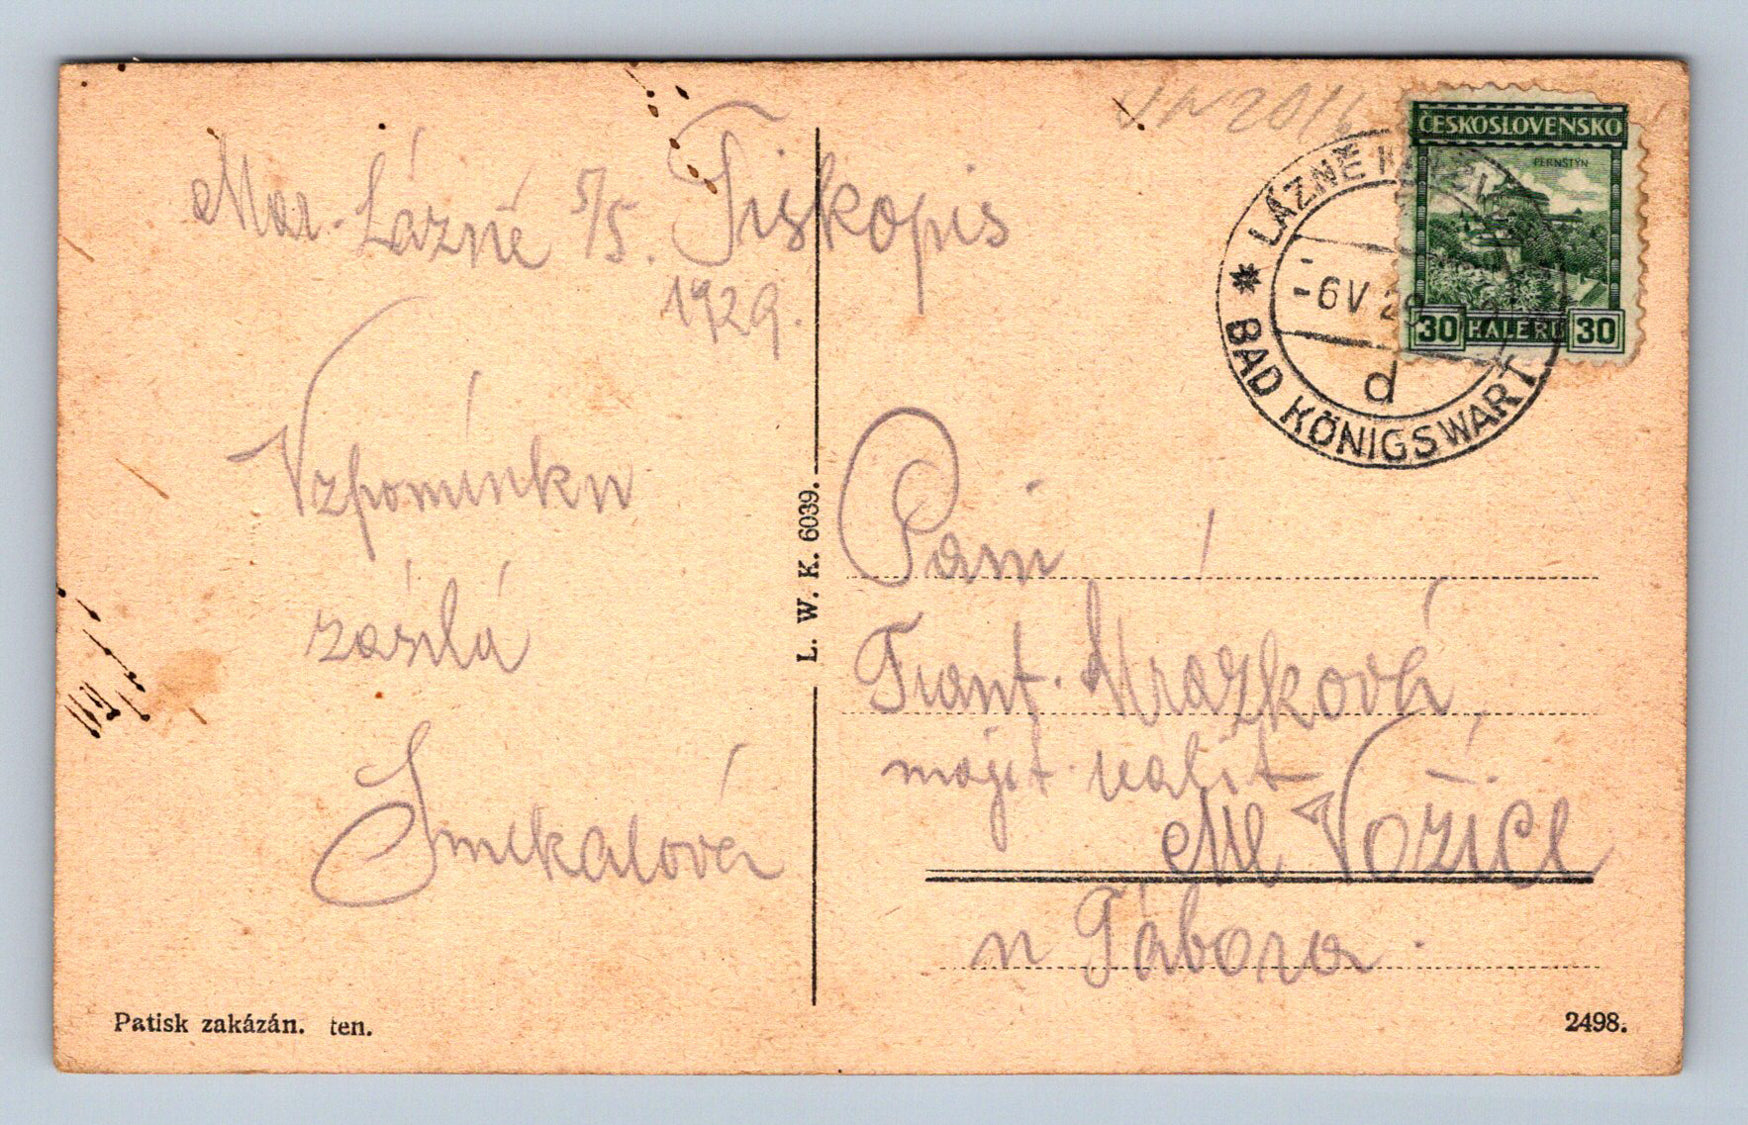 Mar. Lázně 5/5. Tiskopis
1929.
Vzpomínku
zásilá
Smekalová
ČESKOSLOVENSKO
PERNŠTYN
30 HALÉŘŮ 30
LÁZNĚ
-6 V 29
d
BAD KÖNIGSWART
L. W. K. 6039.
Paní
Frant. Mrázková,
majit. realit
Ml Vožice
u Tábora.
Patisk zakázán. ten.
2498.